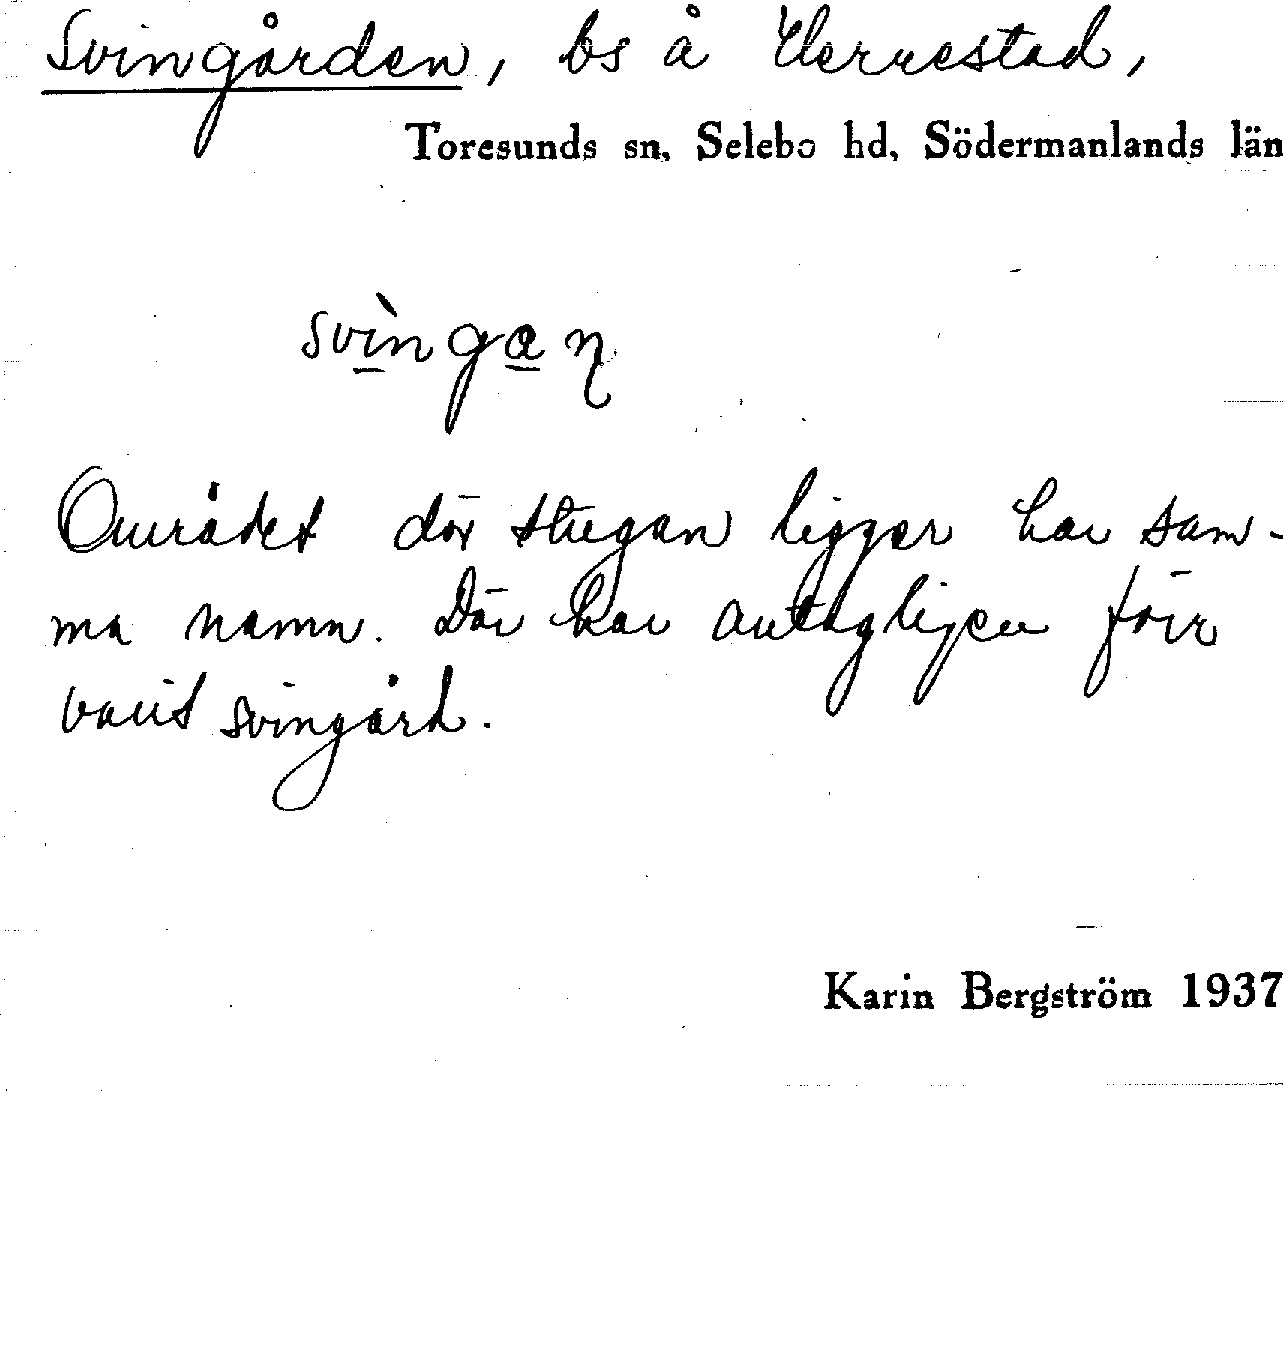 Svingården, bs å Herrestad,
Toresunds sn, Selebo hd, Södermanlands län
svìngan
Området där stugan ligger har sam-
ma namn. Där har antagligen förr
varit svingård.
Karin Bergström 1937